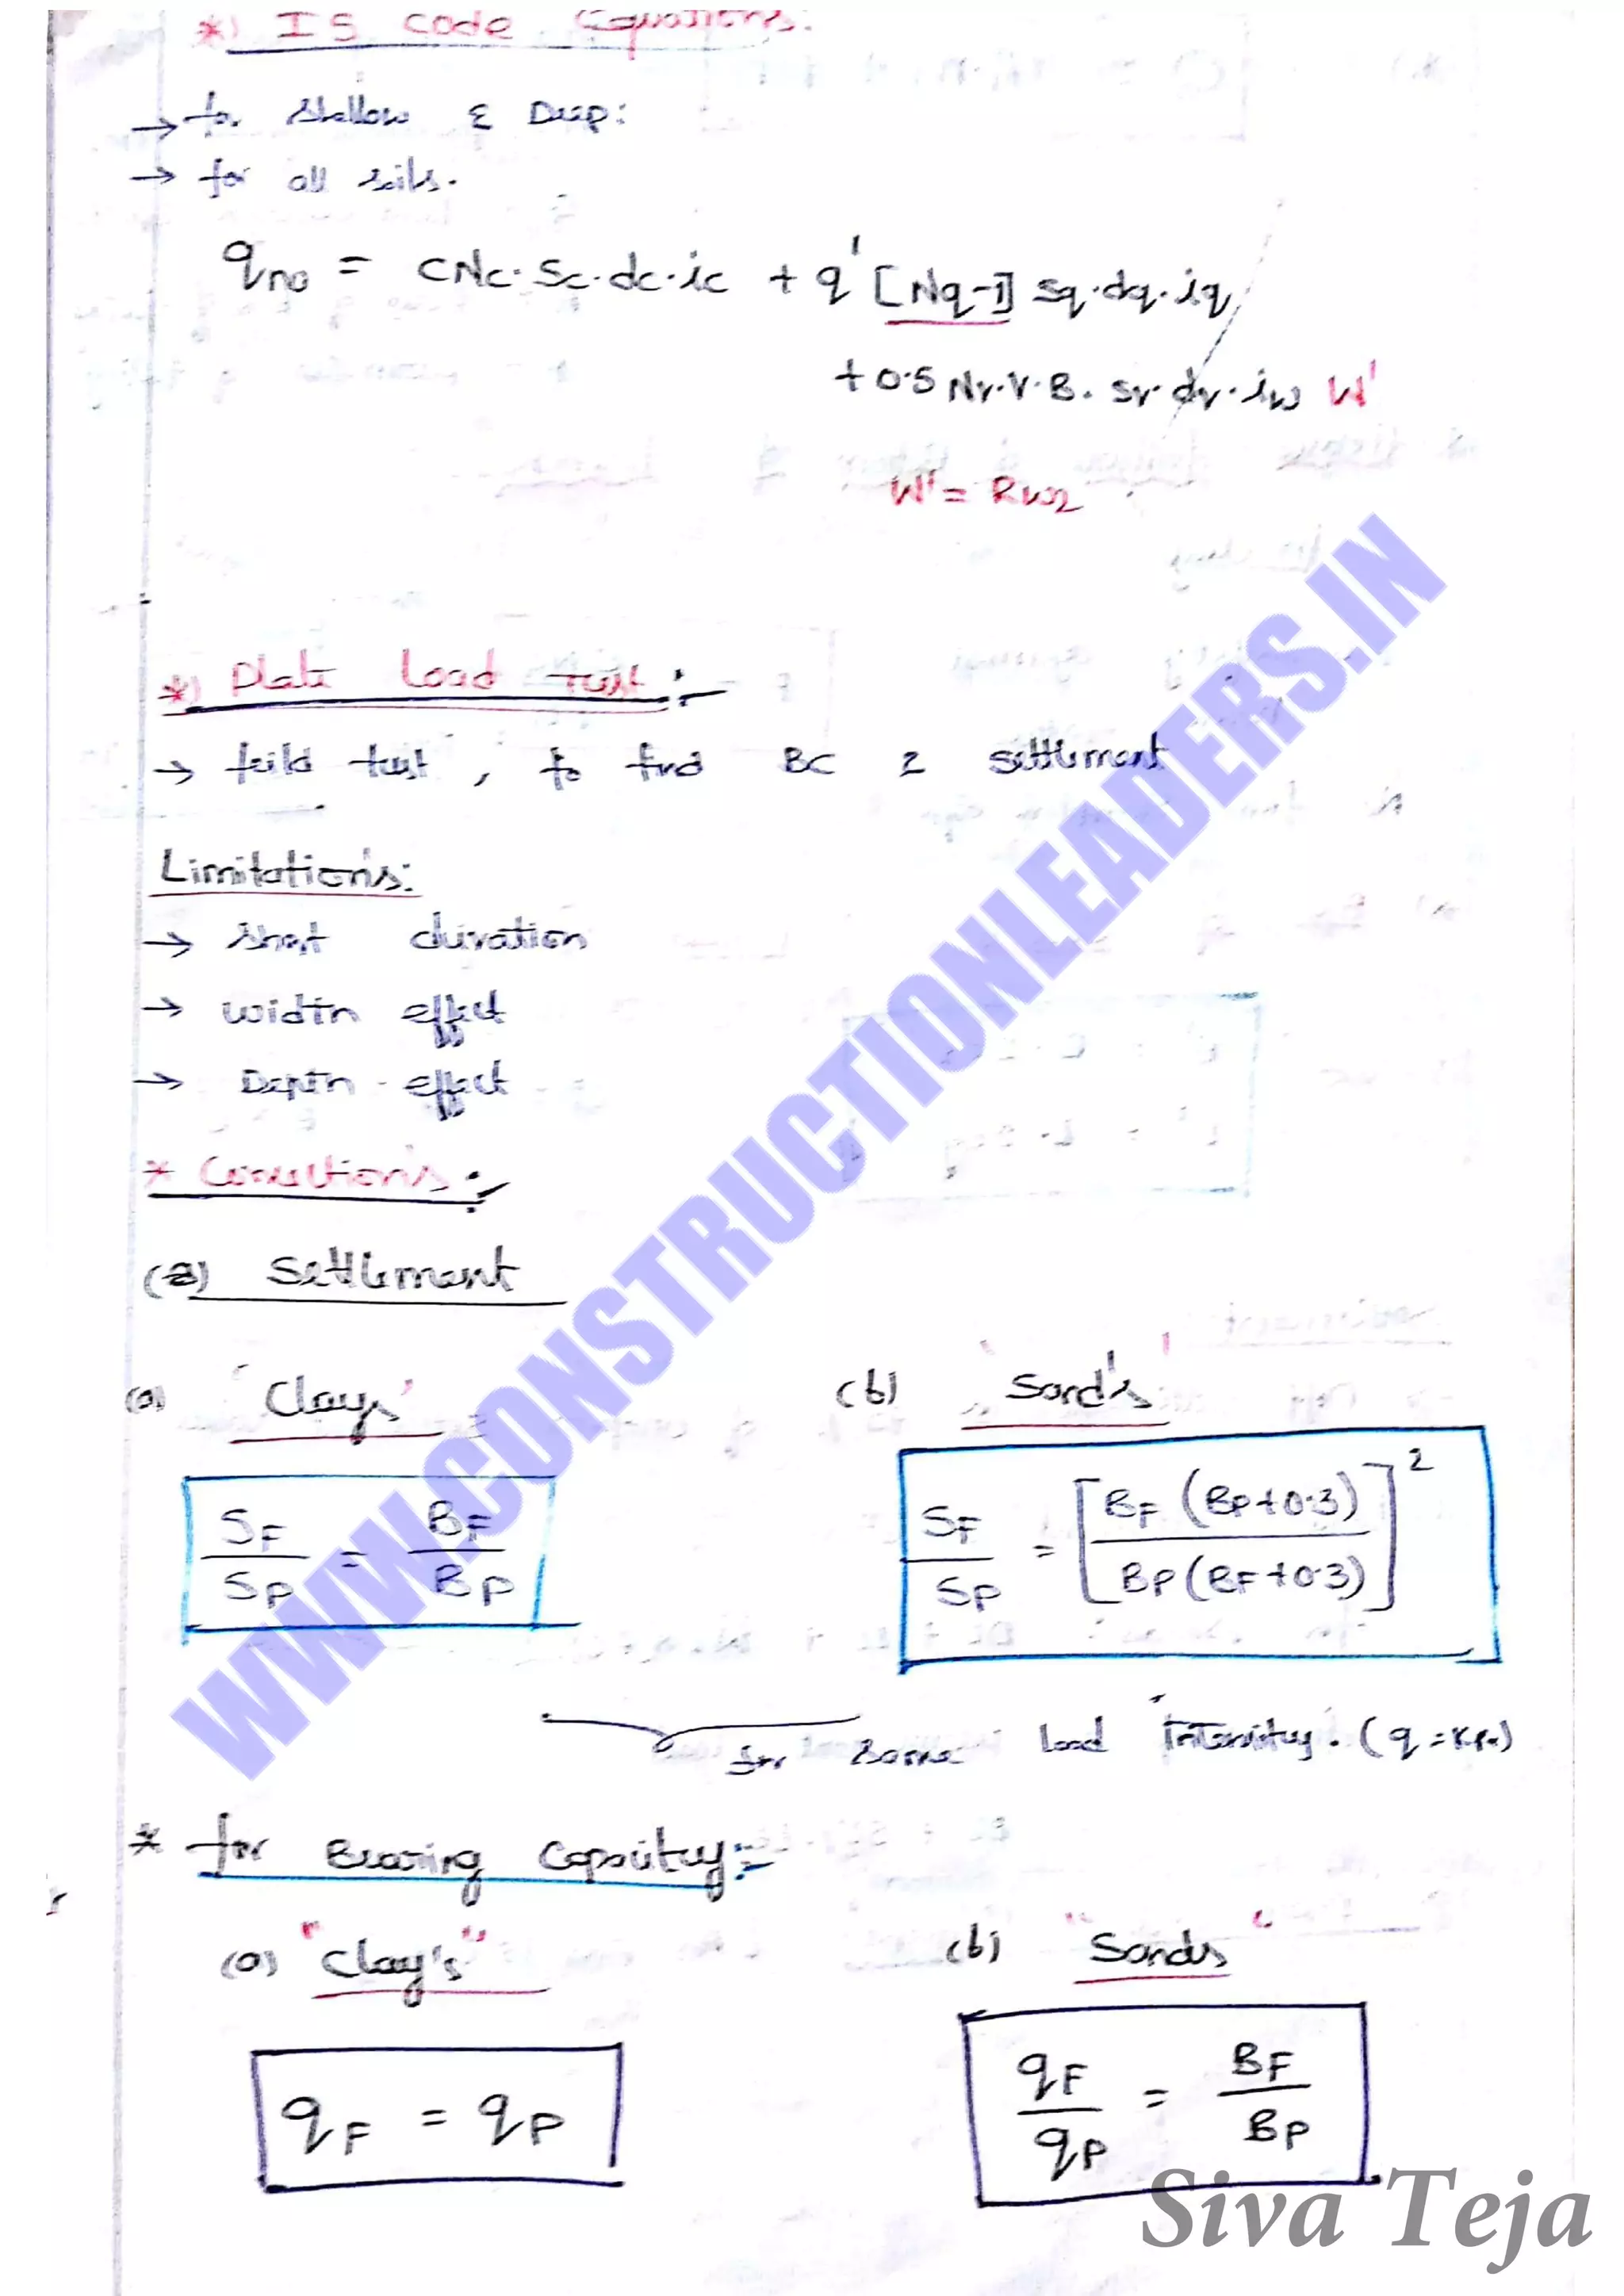 *) IS code Equations:
→ for Shallow & Deep:
→ for all soils.
qnu = CNc. Sc. dc. ic + q' [Nq-1] sq.dq.iq
+ 0.5 Nγ.γ.B. sγ. dγ. iω W'
W' = Rω2
*) Plate Load Test :-
→ feild test , to find BC & settlement
Limitations:
→ Short duration
→ Width effect
→ Depth effect
* Corrections :-
(a) Settlement
(a) 'Clays' (b) 'Sand's'
SF/SP = BF/BP SF/SP = [BF (BP+0.3) / BP (BF+0.3)]²
for Same load Intensity. (q = KPa)
* for Bearing Capacity :-
(a) "Clay's" (b) "Sands"
qF = qP qF/qP = BF/BP
WWW.CONSTRUCTIONLEADERS.IN
Siva Teja